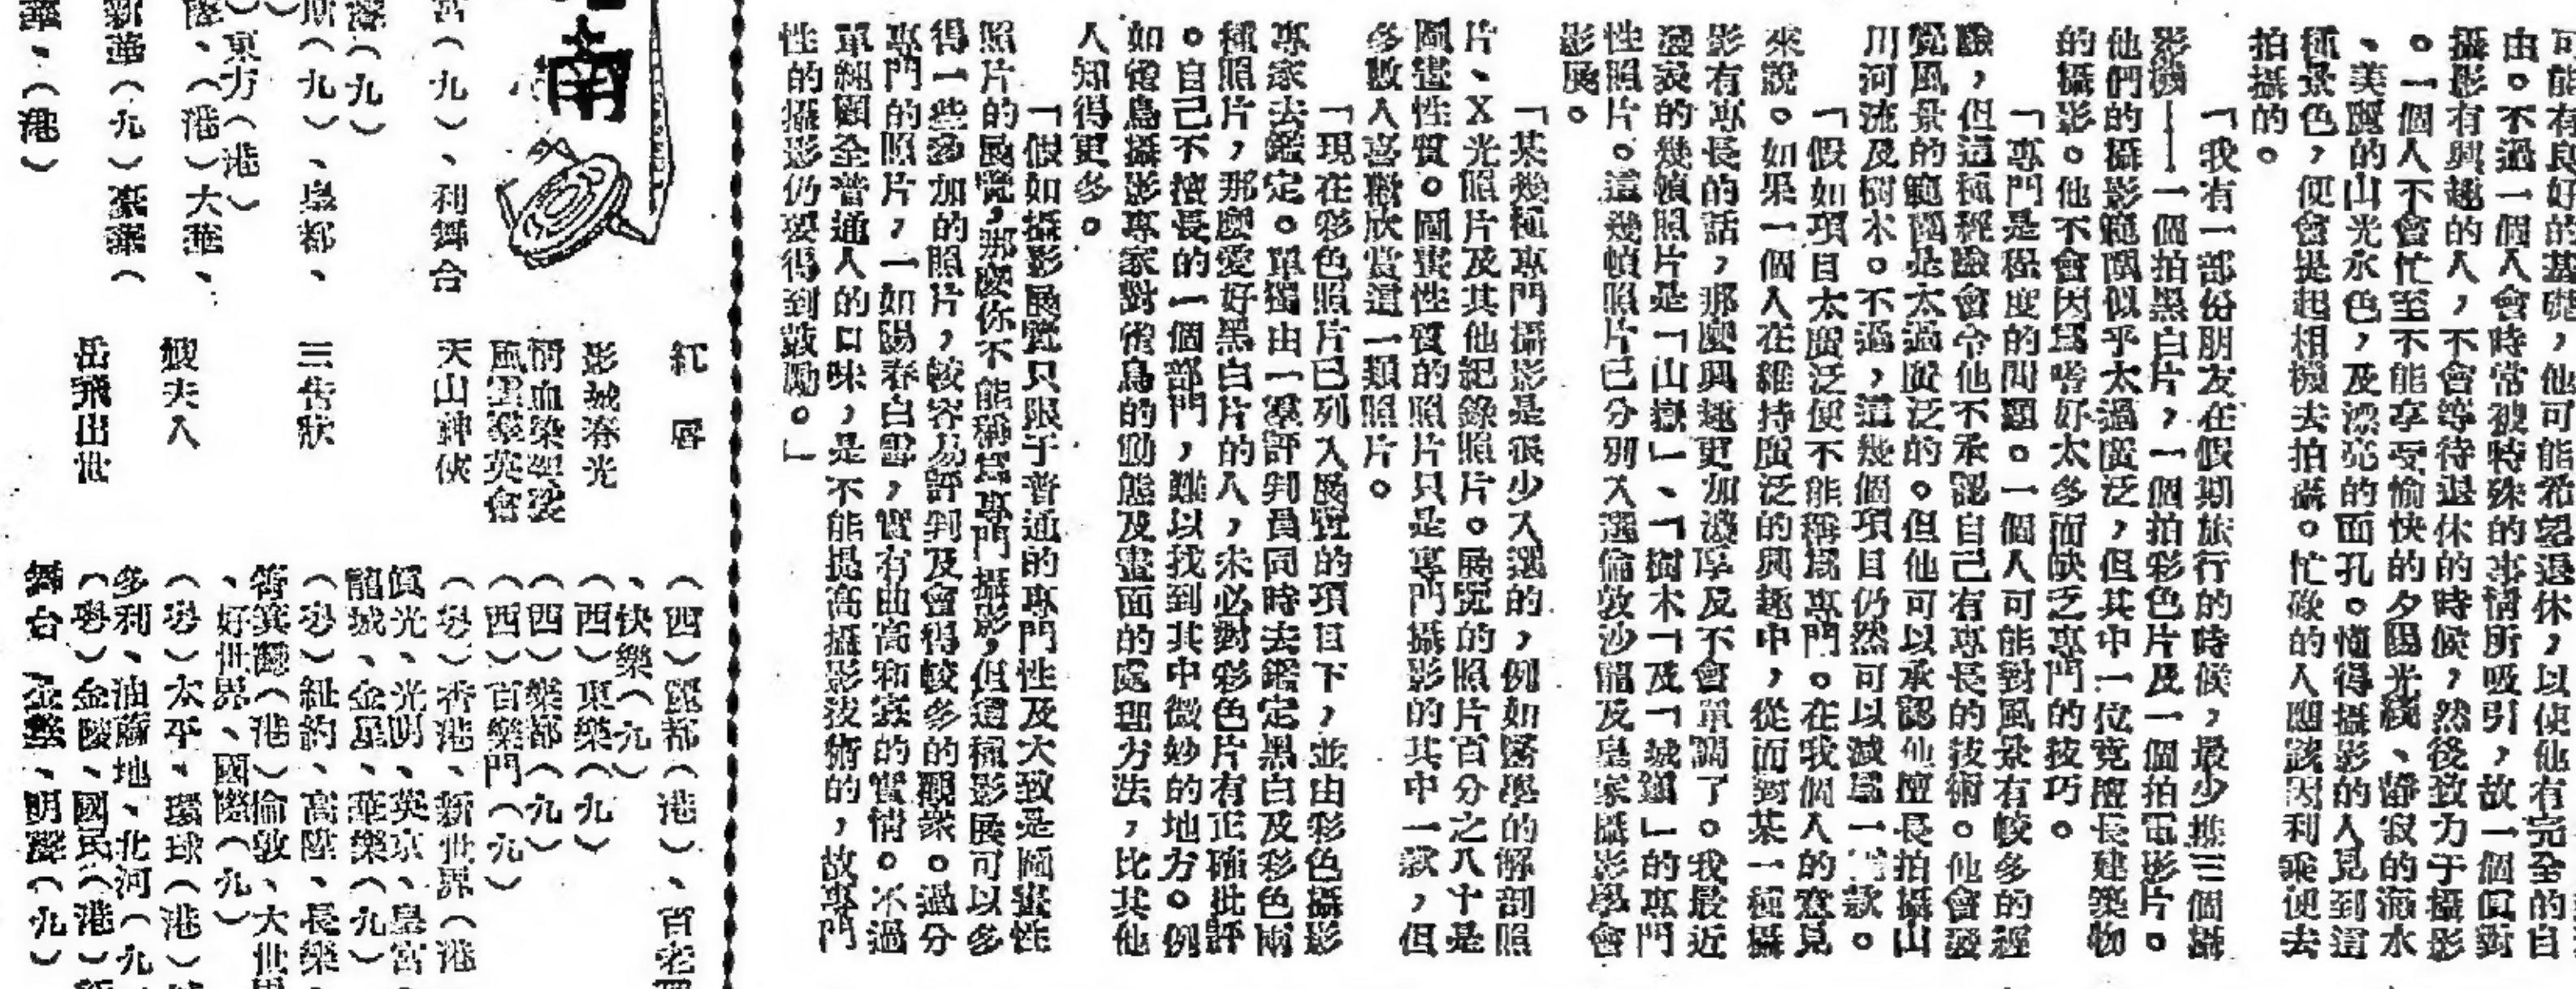 可能有良好的基礎，他可能希望退休，以便他有完全的自
由。不過一個人會時常被特殊的事情所吸引，故一個眞對
攝影有興趣的人，不會等待退休的時候，然後致力于攝影
。一個人不會忙至不能享受愉快的夕陽光綫、靜寂的海水
、美麗的山光水色，及漂亮的面孔。懂得攝影的人見到這
種景色，便會提起相機去拍攝。忙碌的人應該因利乘便去
拍攝的。
「我有一部份朋友在假期旅行的時候，最少携三個攝
影機——一個拍黑白片，一個拍彩色片及一個拍電影片。
他們的攝影範圍似乎太過廣泛，但其中一位竟擅長建築物
的攝影。他不會因爲嗜好太多而缺乏專門的技巧。
「專門是程度的問題。一個人可能對風景有較多的經
驗，但這種經驗會令他不承認自己有專長的技術。他會發
覺風景的範圍是太過廣泛的。但他可以承認他擅長拍攝山
川河流及樹木。不過，這幾個項目仍然可以減爲一款。
「假如項目太廣泛便不能稱爲專門。在我個人的意見
來說。如果一個人在維持廣泛的興趣中，從而對某一種攝
影有專長的話，那麼興趣更加濃厚及不會單調了。我最近
發表的幾幀照片是「山嶽」、「樹木「及「城鎭」的專門
性照片。這幾幀照片已分別入選倫敦沙龍及皇家攝影學會
影展。
「某幾種專門攝影是很少入選的，例如醫學的解剖照
片、X光照片及其他紀錄照片。展覽的照片百分之八十是
圖畫性質。圖畫性質的照片只是專門攝影的其中一款，但
多數人喜歡欣賞這一類照片。
「現在彩色照片已列入展覽的項目下，並由彩色攝影
專家去鑑定。單獨由一羣評判員同時去鑑定黑白及彩色兩
種照片，那麼愛好黑白片的人，未必對彩色片有正確批評
。自己不擅長的一個部門，難以找到其中微妙的地方。例
如雀鳥攝影專家對雀鳥的動態及畫面的處理方法，比其他
人知得更多。
「假如攝影展覽只限于普通的專門性及大致是圖畫性
照片的展覽，那麼你不能稱爲專門攝影，但這種影展可以多
得一些參加的照片，較容易評判及會得較多的觀衆。過分
專門的照片，一如陽春白雪，實有曲高和寡的實情。不過
單純顧全普通人的口味，是不能提高攝影技術的，故專門
性的攝影仍要得到鼓勵。」
南
紅唇
（西）麗都（港）、百老
、快樂（九）
影城春光
（西）東樂（九）
情血染架裟
（西）樂都（九）
風雲羣英會
（西）百樂門（九）
宮（九）、利舞台
天山神俠
（粵）香港、新世界（港
眞光、光明、英京、皇宮
（九）
龍城、金星、華樂（九）
（九）、皇都、
三告狀
（粵）紐約、高陞、長樂
東方（港）
筲箕灣（港）倫敦、大世界
、（港）大華、
、好世界、國際（九）
嫂夫人
（粵）太平、環球（港）
新華（九）豪華（
多利、油蔴地、北河（九
岳飛出世
（粵）金陵、國民（港）新
華、（港）
舞台、金華、明聲（九）